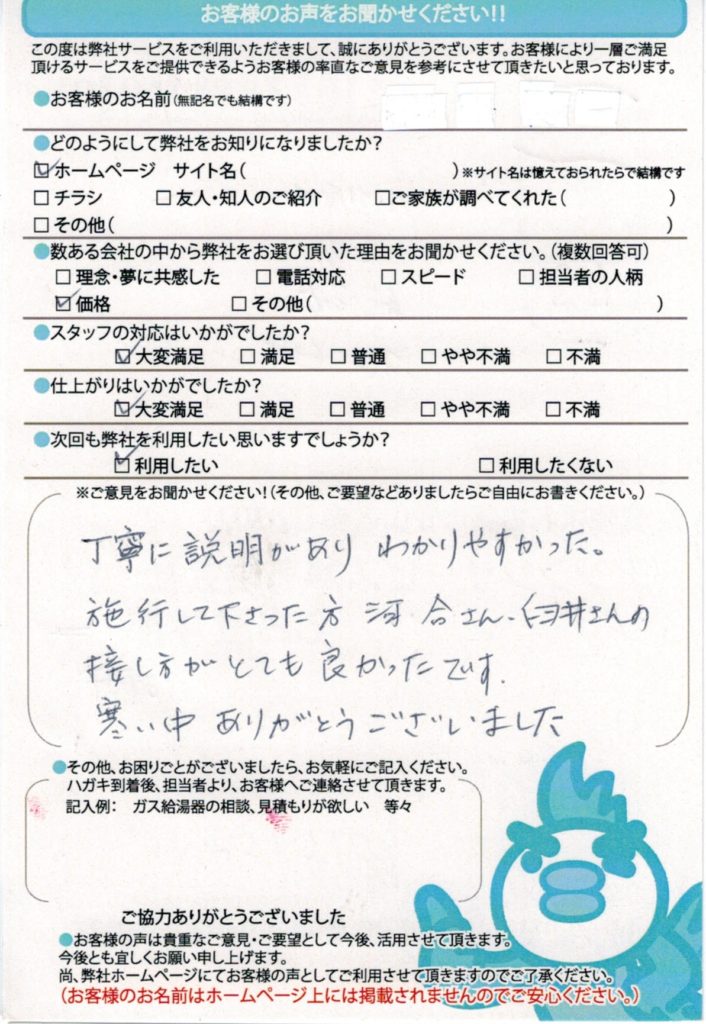 お客様のお声をお聞かせください!!
この度は弊社サービスをご利用いただきまして、誠にありがとうございます。お客様により一層ご満足
頂けるサービスをご提供できるようお客様の率直なご意見を参考にさせて頂きたいと思っております。
●お客様のお名前(無記名でも結構です)
●どのようにして弊社をお知りになりましたか?
☑ホームページ サイト名( )※サイト名は憶えておられたらで結構です
□チラシ □友人・知人のご紹介 □ご家族が調べてくれた( )
□その他( )
●数ある会社の中から弊社をお選び頂いた理由をお聞かせください。(複数回答可)
□理念・夢に共感した □電話対応 □スピード □担当者の人柄
☑価格 □その他( )
●スタッフの対応はいかがでしたか?
☑大変満足 □満足 □普通 □やや不満 □不満
●仕上がりはいかがでしたか?
☑大変満足 □満足 □普通 □やや不満 □不満
●次回も弊社を利用したい思いますでしょうか?
☑利用したい □利用したくない
※ご意見をお聞かせください!(その他、ご要望などありましたらご自由にお書きください。)
丁寧に説明があり わかりやすかった。
施行して下さった方 河合さん、臼井さんの
接し方がとても良かったです。
寒い中 ありがとうございました
●その他、お困りごとがございましたら、お気軽にご記入ください。
ハガキ到着後、担当者より、お客様へご連絡させて頂きます。
記入例: ガス給湯器の相談、見積もりが欲しい 等々
ご協力ありがとうございました
●お客様の声は貴重なご意見・ご要望として今後、活用させて頂きます。
今後とも宜しくお願い申し上げます。
尚、弊社ホームページにてお客様の声としてご利用させて頂きますのでご了承ください。
(お客様のお名前はホームページ上には掲載されませんのでご安心ください。)